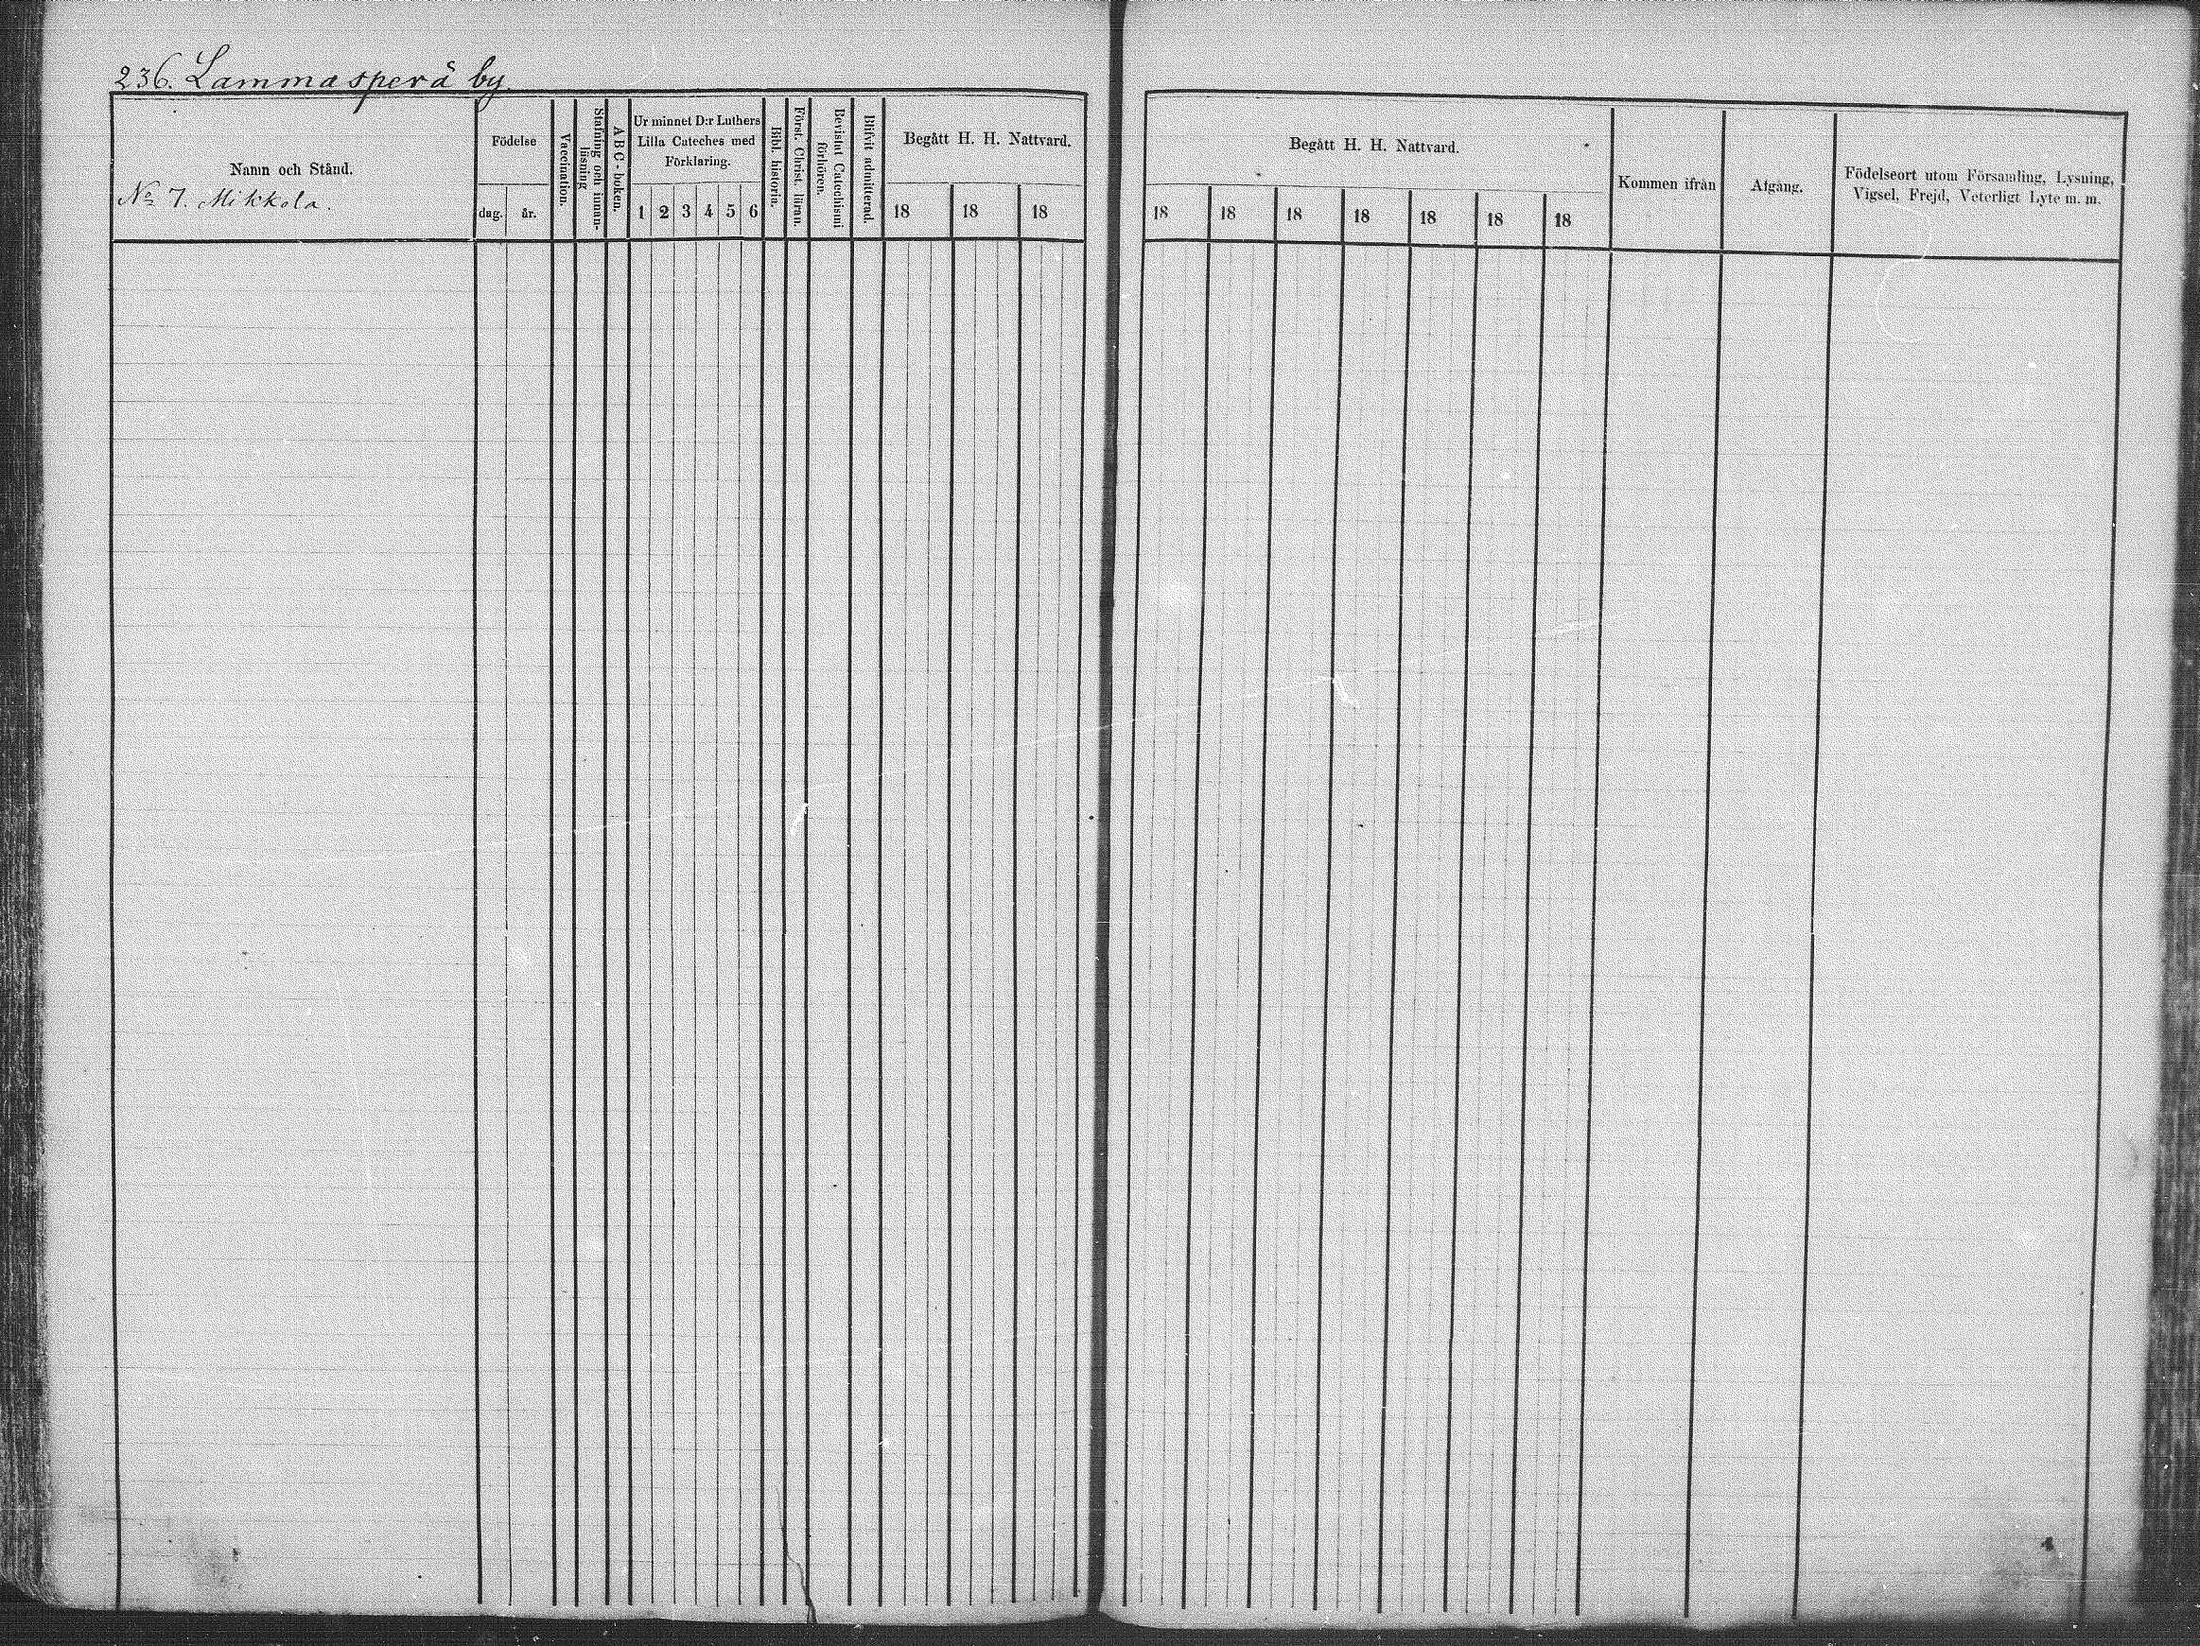 236. Lammasperä by.
Namn och Stånd.
No 7. Mikkola.
Födelse
dag.
år.
Vaccination.
Stafning och innan-
läsning
ABC-boken.
Ur minnet D:r Luthers
Lilla Cateches med
Förklaring.
1 2 3 4 5 6
Bibl. historia.
Först. Christ. läran.
Bevistat Catechismi
förhören.
Blifvit admitterad.
Begått H. H. Nattvard.
18 18 18
Begått H. H. Nattvard.
18 18 18 18 18 18 18
Kommen ifrån
Afgång.
Födelseort utom Församling, Lysning,
Vigsel, Frejd, Veterligt Lyte m. m.